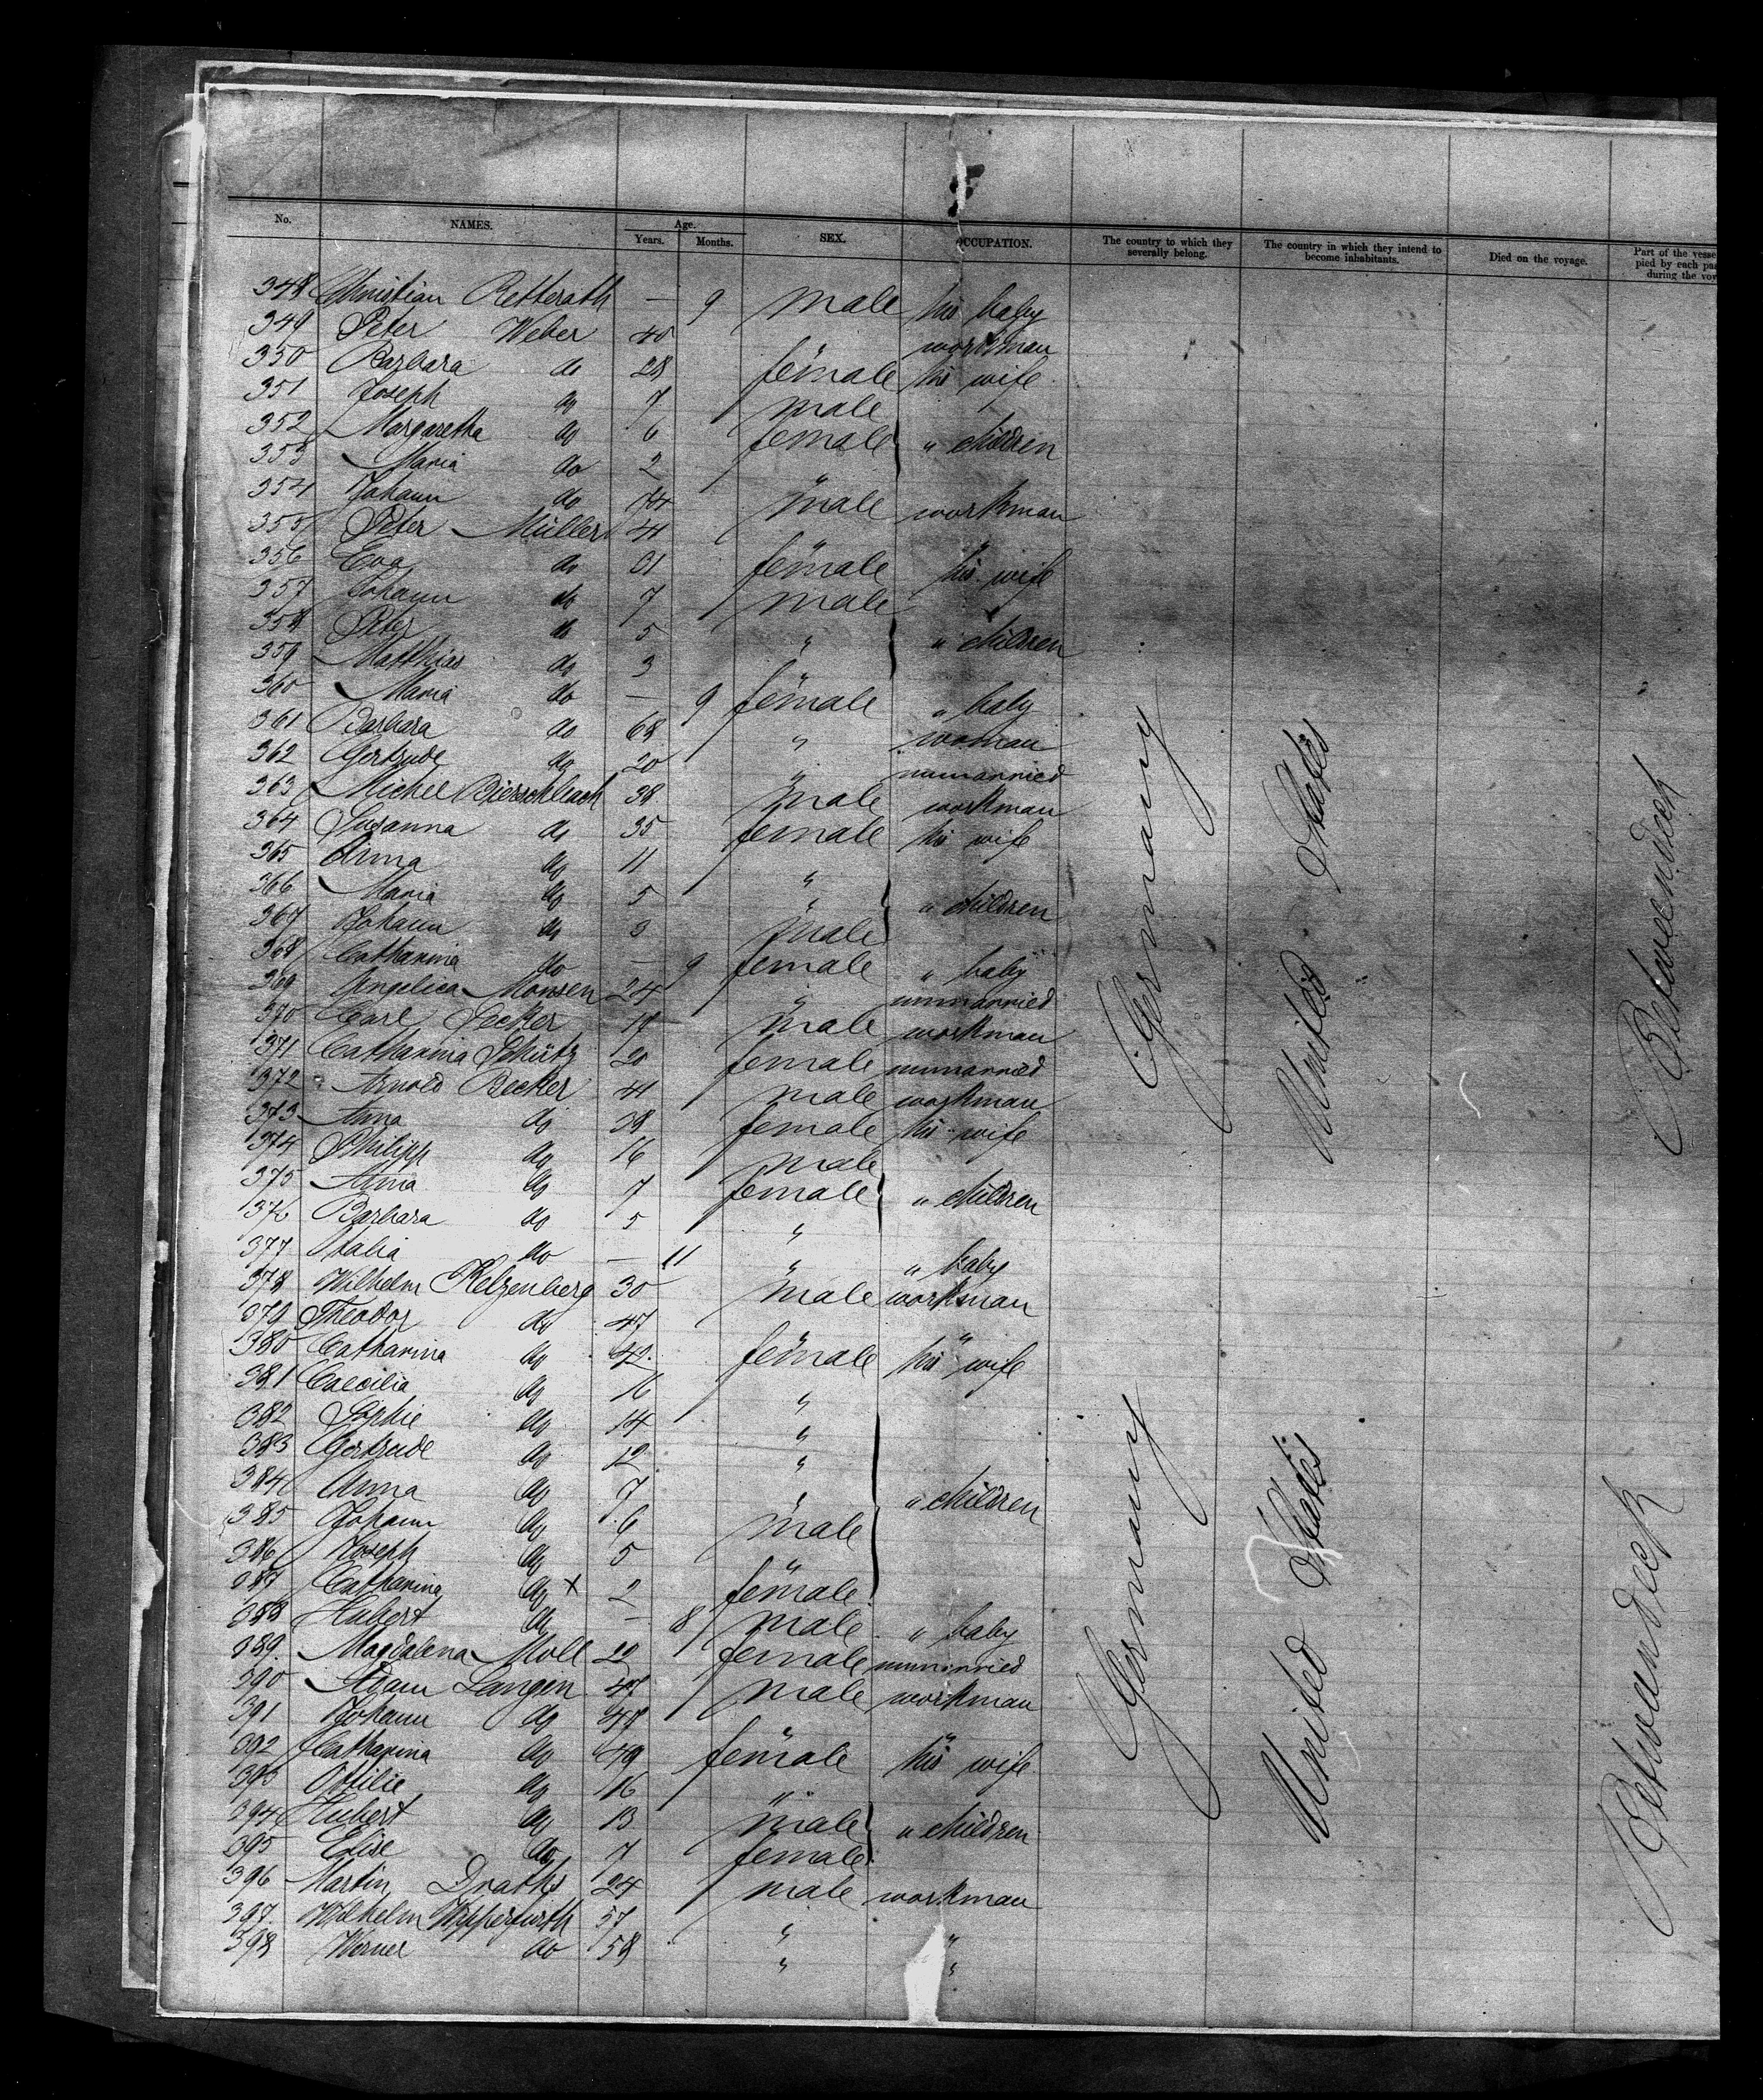 No. NAMES. Age. Years. Months. SEX. OCCUPATION. The country to which they severally belong. The country in which they intend to become inhabitants. Died on the voyage. Part of the vesse pied by each pa during the voy
348 Christian Retterath — 9 male his baby
349 Peter Weber 40 " workman
350 Barbara do 28 female his wife
351 Joseph do 7 male
352 Margaretha do 6 female } " children
353 Maria do 2 "
354 Johann do 74 male workman
355 Peter Müller 41 " "
356 Eva do 31 female his wife
357 Johann do 7 male
358 Peter do 5 " } " children
359 Matthias do 3 "
360 Maria do — 9 female " baby
361 Barbara do 68 " woman
362 Gertrude do 20 " unmarried
363 Michel Bierschbach 38 male workman
364 Susanna do 35 female his wife
365 Anna do 11 "
366 Maria do 5 " } " children
367 Johann do 3 male
368 Catharina do — 9 female " baby
369 Angelica Monsen 24 " unmarried
370 Carl Decker 17 male workman
371 Catharina Schütz 20 female unmarried
372 Arnold Becker 41 male workman
373 Anna do 38 female his wife
374 Philipp do 16 male
375 Anna do 7 female } " children
376 Barbara do 5 "
377 Otalia do — 11 " " baby
378 Wilhelm Kelzenberg 30 male workman
379 Theodor do 47 " "
380 Catharina do 42 female his wife
381 Caecilia do 16 "
382 Sophie do 14 "
383 Gertrude do 12 "
384 Anna do 7 " } " children
385 Johann do 6 male
386 Joseph do 5 "
387 Catharina do x 2 female
388 Hubert do — 8 male " baby
389. Magdalena Moll 22 female unmarried
390 Adam Langen 47 male workman
391 Johann do 47 " "
392 Catharina do 49 female his wife
393 Ottilie do 16 "
394 Hubert do 13 male } " children
395 Elise do 7 female
396 Martin Draths 24 male workman
397. Wilhelm Wipperfurth 57 " "
398 Werner do 58 " "
Germany United States Betweendeck
Germany United States Betweendeck